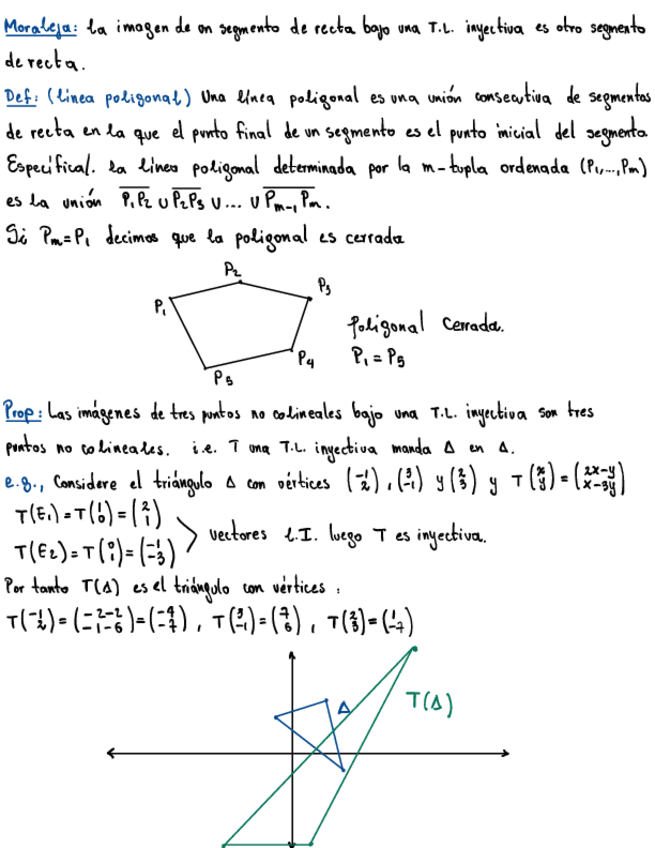 Moraleja: La imagen de un segmento de recta bajo una T.L. inyectiva es otro segmento
de recta.
Def: (línea poligonal) Una línea poligonal es una unión consecutiva de segmentos
de recta en la que el punto final de un segmento es el punto inicial del segmento
Específical. La línea poligonal determinada por la m-tupla ordenada (P₁,...,Pm)
es la unión P₁P₂ ∪ P₂P₃ ∪ ... ∪ Pm-₁Pm.
Si Pm=P₁ decimos que la poligonal es cerrada
P₂
P₃
P₁
Poligonal cerrada.
P₄
P₁ = P₅
P₅
Prop: Las imágenes de tres puntos no colineales bajo una T.L. inyectiva son tres
puntos no colineales. i.e. T una T.L. inyectiva manda Δ en Δ.
e.g., Considere el triángulo Δ con vértices (-1 2), (3 -1) y (2 3) y T(x y) = (2x-y x-3y)
T(E₁)=T(1 0)=(2 1)
vectores L.I. luego T es inyectiva.
T(E₂)=T(0 1)=(-1 -3)
Por tanto T(Δ) es el triángulo con vértices:
T(-1 2)=(-2-2 -1-6)=(-4 -7), T(3 -1)=(7 6), T(2 3)=(1 -7)
Δ
T(Δ)